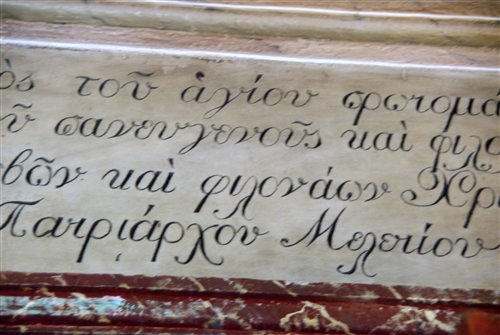 ὸς τοῦ ἁγίου φωτομά
οῦ πανευγενοῦς καὶ φιλο
βῶν καὶ φιλονάων Χρι
Πατριάρχου Μελετίου